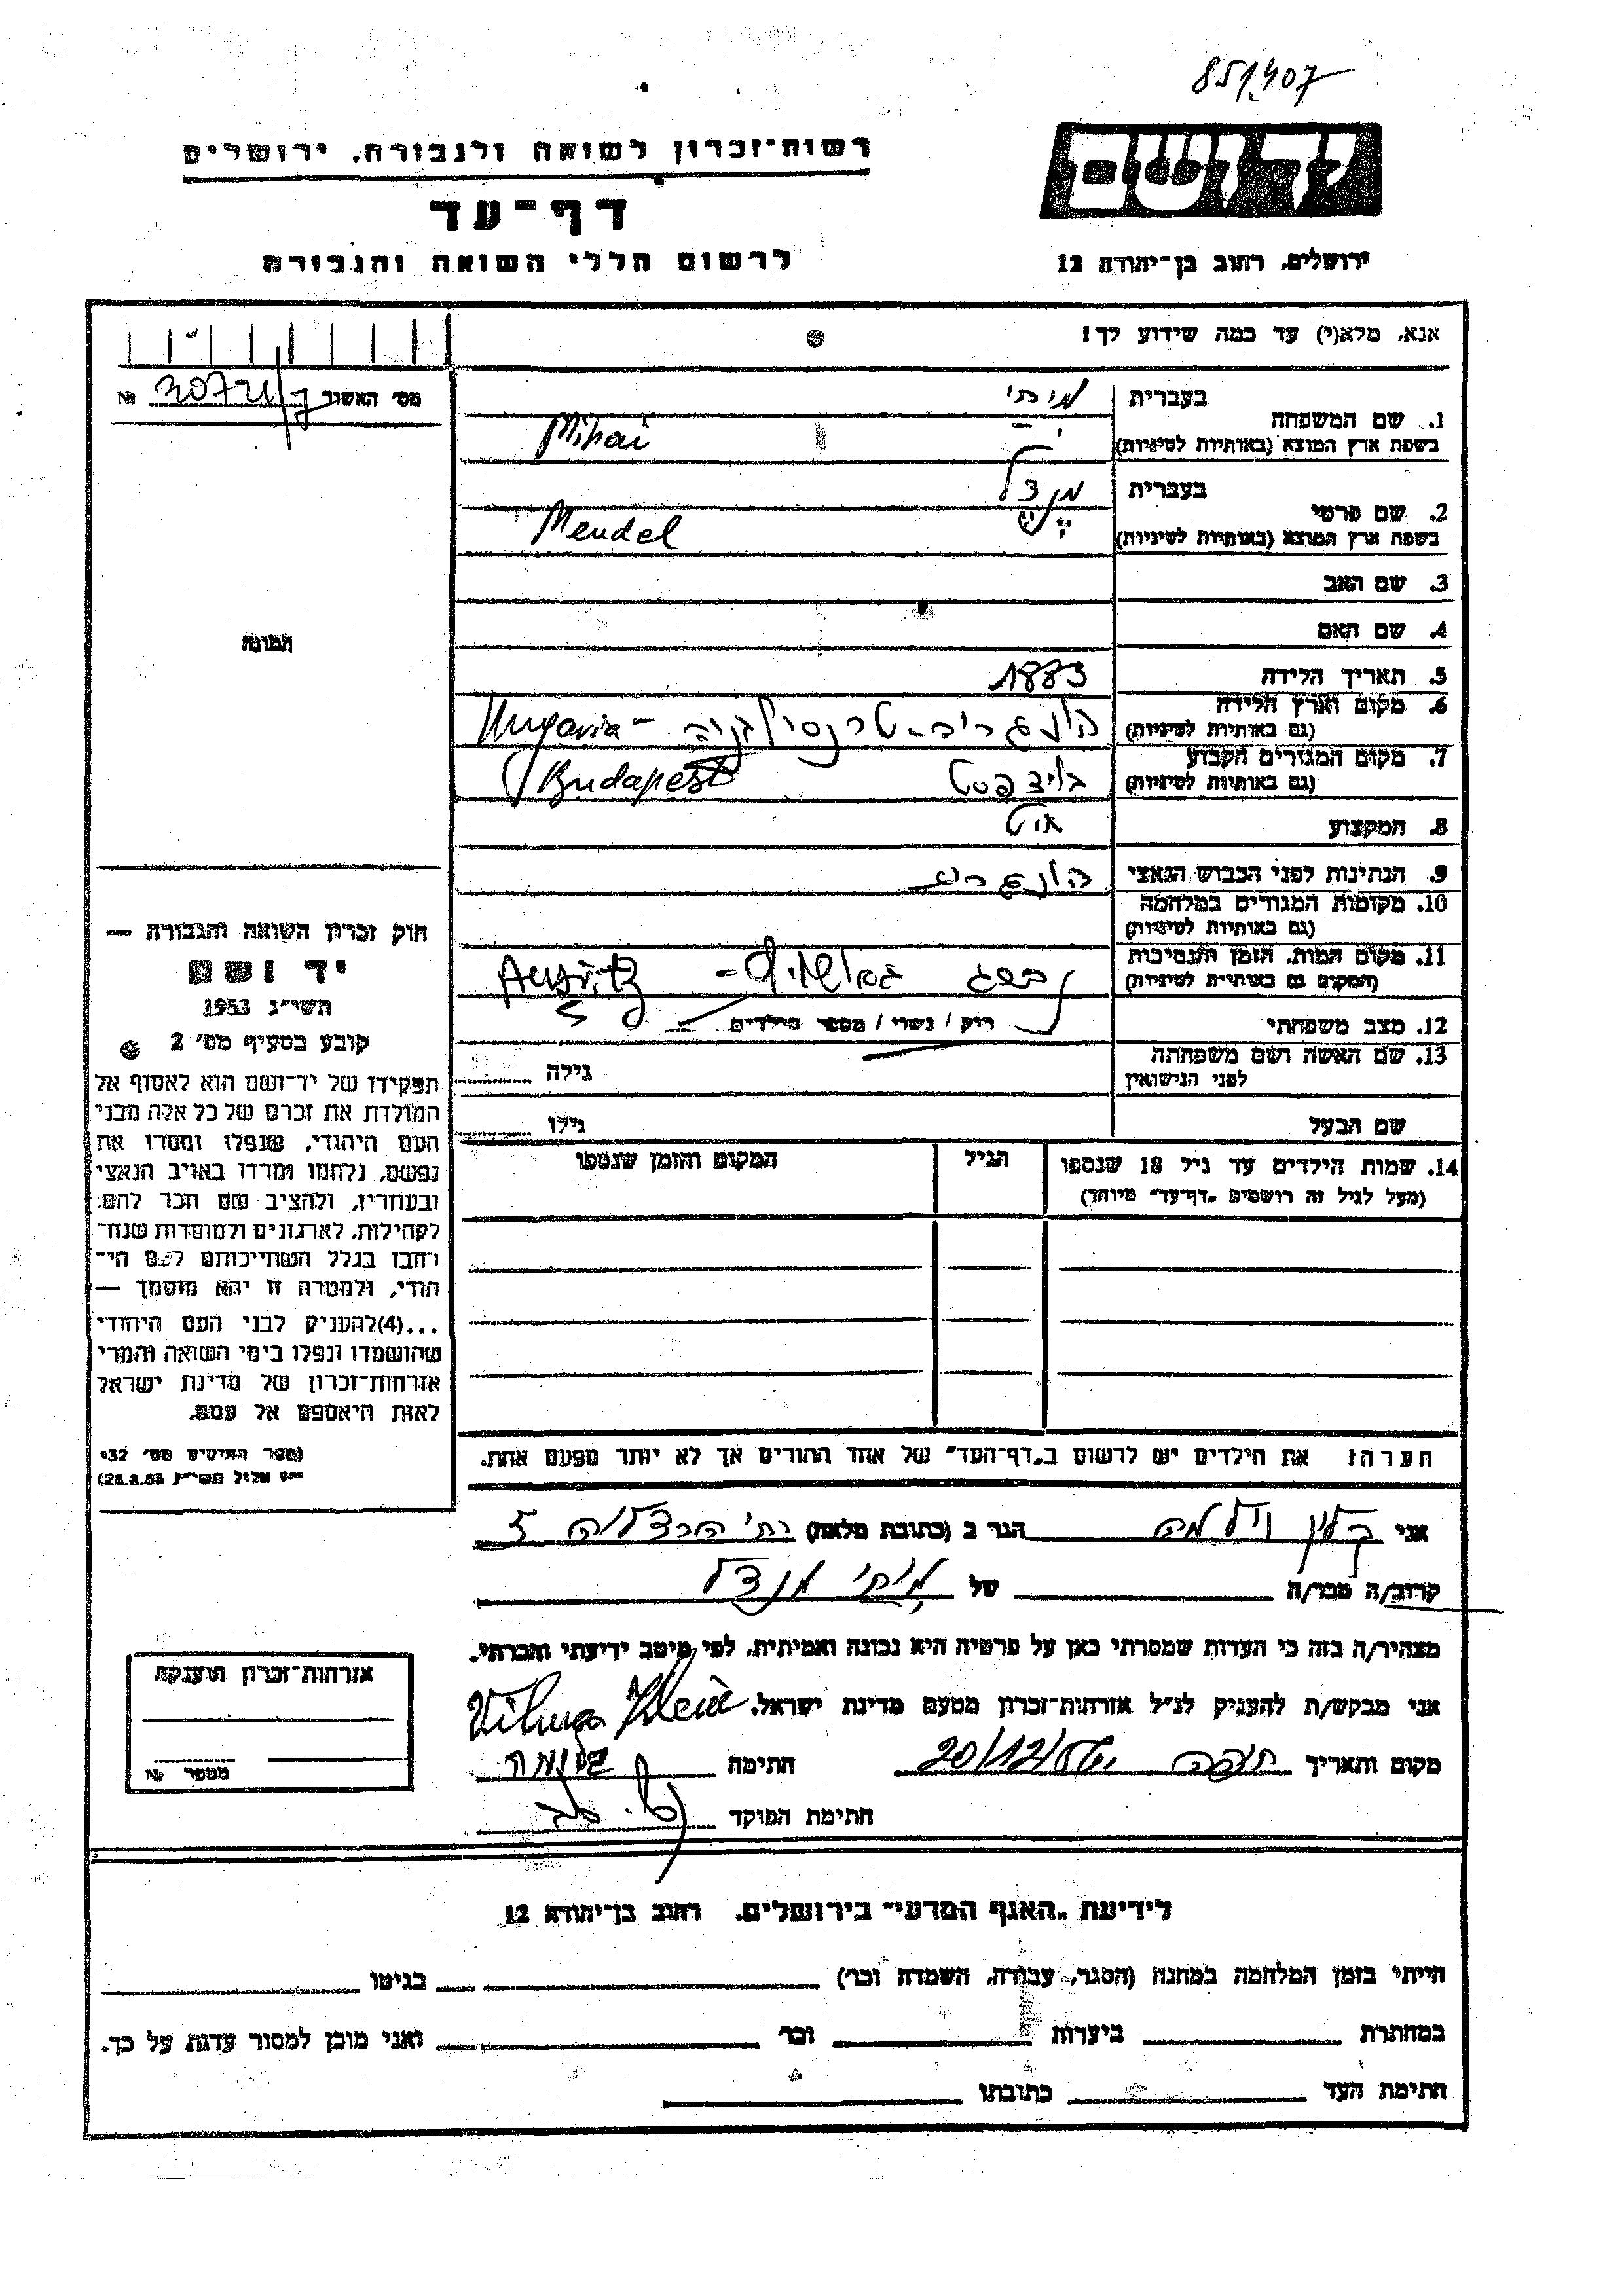 851407
רשות־זכרון לשואה ולגבורה, ירושלים
דף־עד
לרשום חללי השואה והגבורה
יד ושם
ירושלים, רחוב בן־יהודה 12
אנא, מלא(י) עד כמה שידוע לך!
מס' האשור №
1. שם המשפחה
בעברית
בשפת ארץ המוצא (באותיות לטיניות) Mihai
2. שם פרטי
בעברית מנדל
בשפת ארץ המוצא (באותיות לטיניות) Mendel
3. שם האב
4. שם האם
5. תאריך הלידה 1883
6. מקום וארץ הלידה
(גם באותיות לטיניות) הונגריה - טרנסילבניה - Hungaria
7. מקום המגורים הקבוע
(גם באותיות לטיניות) בודפסט Budapest
8. המקצוע
9. הנתינות לפני הכבוש הנאצי
10. מקומות המגורים במלחמה
(גם באותיות לטיניות)
11. מקום המות, הזמן והנסיבות
(המקום גם באותיות לטיניות)
12. מצב משפחתי רוק / נשוי / מספר הילדים
13. שם האשה ושם משפחתה
לפני הנישואין גילה
שם הבעל גילו
14. שמות הילדים עד גיל 18 שנספו
(מעל לגיל זה רושמים "דף־עד" מיוחד)
הגיל
המקום והזמן שנספו
הערה: את הילדים יש לרשום ב"דף־העד" של אחד ההורים אך לא יותר מפעם אחת.
תמונה
חוק זכרון השואה והגבורה —
יד ושם
תשי"ג 1953
קובע בסעיף מס' 2
תפקידו של יד־ושם הוא לאסוף אל
המולדת את זכרם של כל אלה מבני
העם היהודי, שנפלו ומסרו את
נפשם, נלחמו ומרדו באויב הנאצי
ובעוזריו, ולהציב שם וזכר להם,
לקהילות, לארגונים ולמוסדות שנח־
רבו בגלל השתייכותם לעם הי־
הודי, ולמטרה זו יהא מוסמך —
...(4)להעניק לבני העם היהודי
שהושמדו ונפלו בימי השואה והמרי
אזרחות־זכרון של מדינת ישראל
לאות היאספם אל עמם.
(ספר החוקים מס' 132
י"ז אלול תשי"ג 28.8.53)
אני קליין וילמה הגר ב (כתובת מלאה)
קרוב/ה מכר/ה של מנדל
מצהיר/ה בזה כי העדות שמסרתי כאן על פרטיה היא נכונה ואמיתית, לפי מיטב ידיעתי והכרתי.
אני מבקש/ת להעניק לנ"ל אזרחות־זכרון מטעם מדינת ישראל. Vilma Klein
מקום ותאריך חתימה
חתימת הפוקד
אזרחות־זכרון הוענקה
מספר №
לידיעת "האגף המדעי" בירושלים, רחוב בן־יהודה 12
הייתי בזמן המלחמה במחנה (הסגר, עבודה, השמדה וכו') בגיטו
במחתרת ביערות וכו' ואני מוכן למסור עדות על כך.
חתימת העד כתובתו